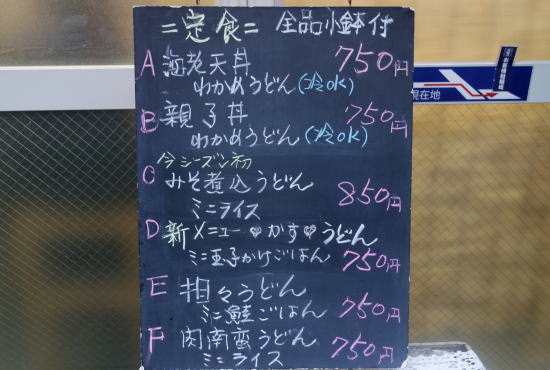 =定食= 全品小鉢付
A 海老天丼 750円
わかめうどん(冷OK)
B 親子丼 750円
わかめうどん(冷OK)
今シーズン初
C みそ煮込うどん 850円
ミニライス
D 新メニュー♥かす♥うどん
ミニ玉子かけごはん 750円
E 担々うどん
ミニ鮭ごはん 750円
F 肉南蛮うどん
ミニライス 750円
現在地